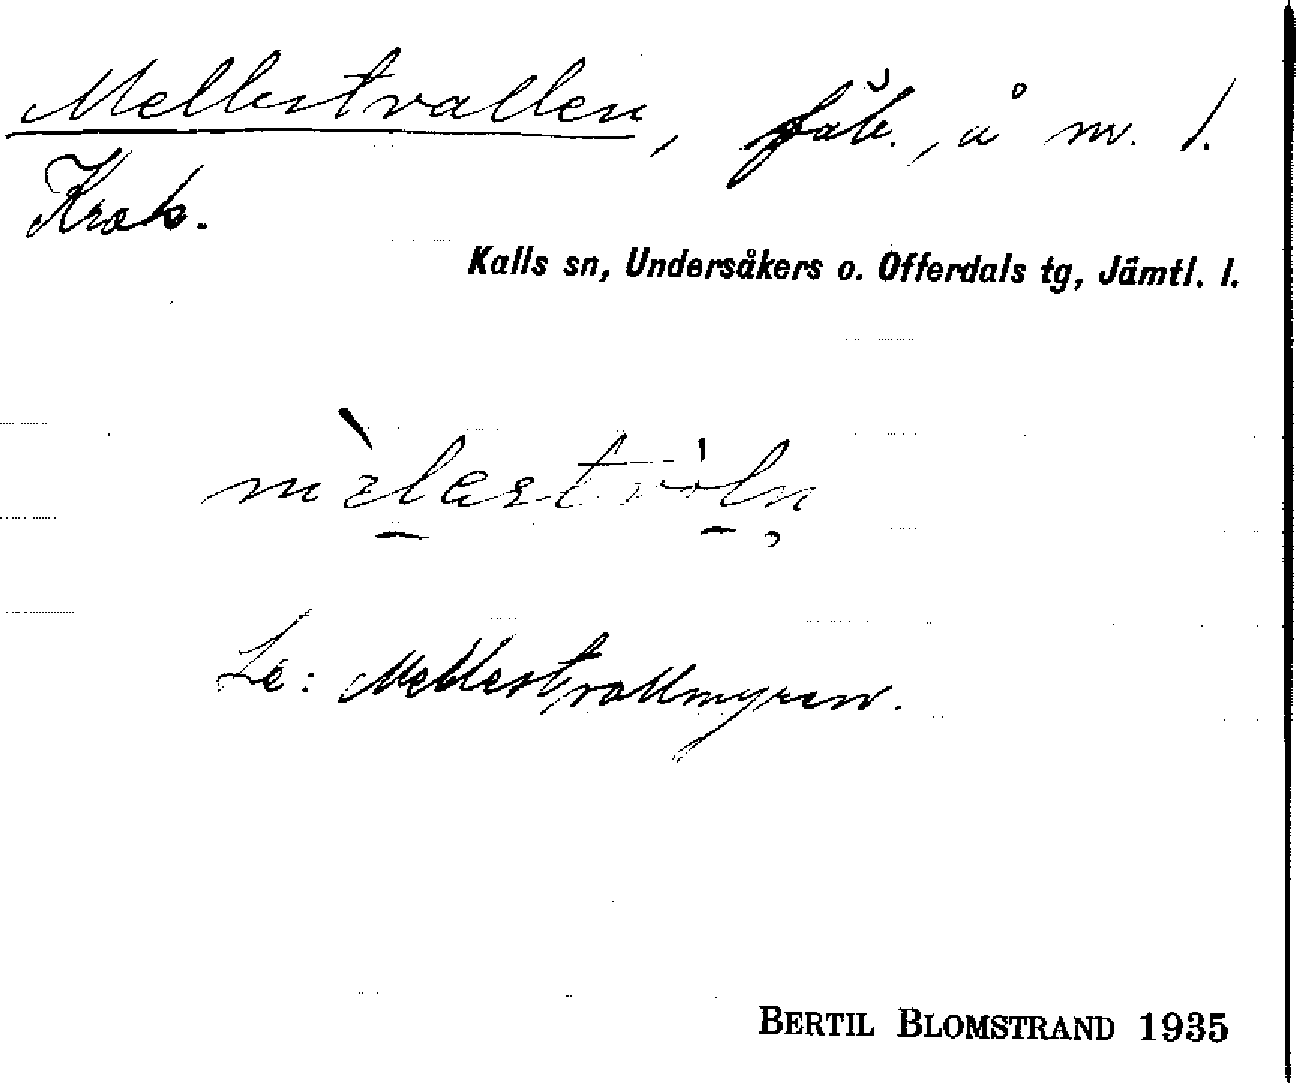 Mellestvallen, fäb., å nv. l.
Krok.
Kalls sn, Undersåkers o. Offerdals tg, Jämtl. l.
Le: Mellestvallmyren.
BERTIL BLOMSTRAND 1935